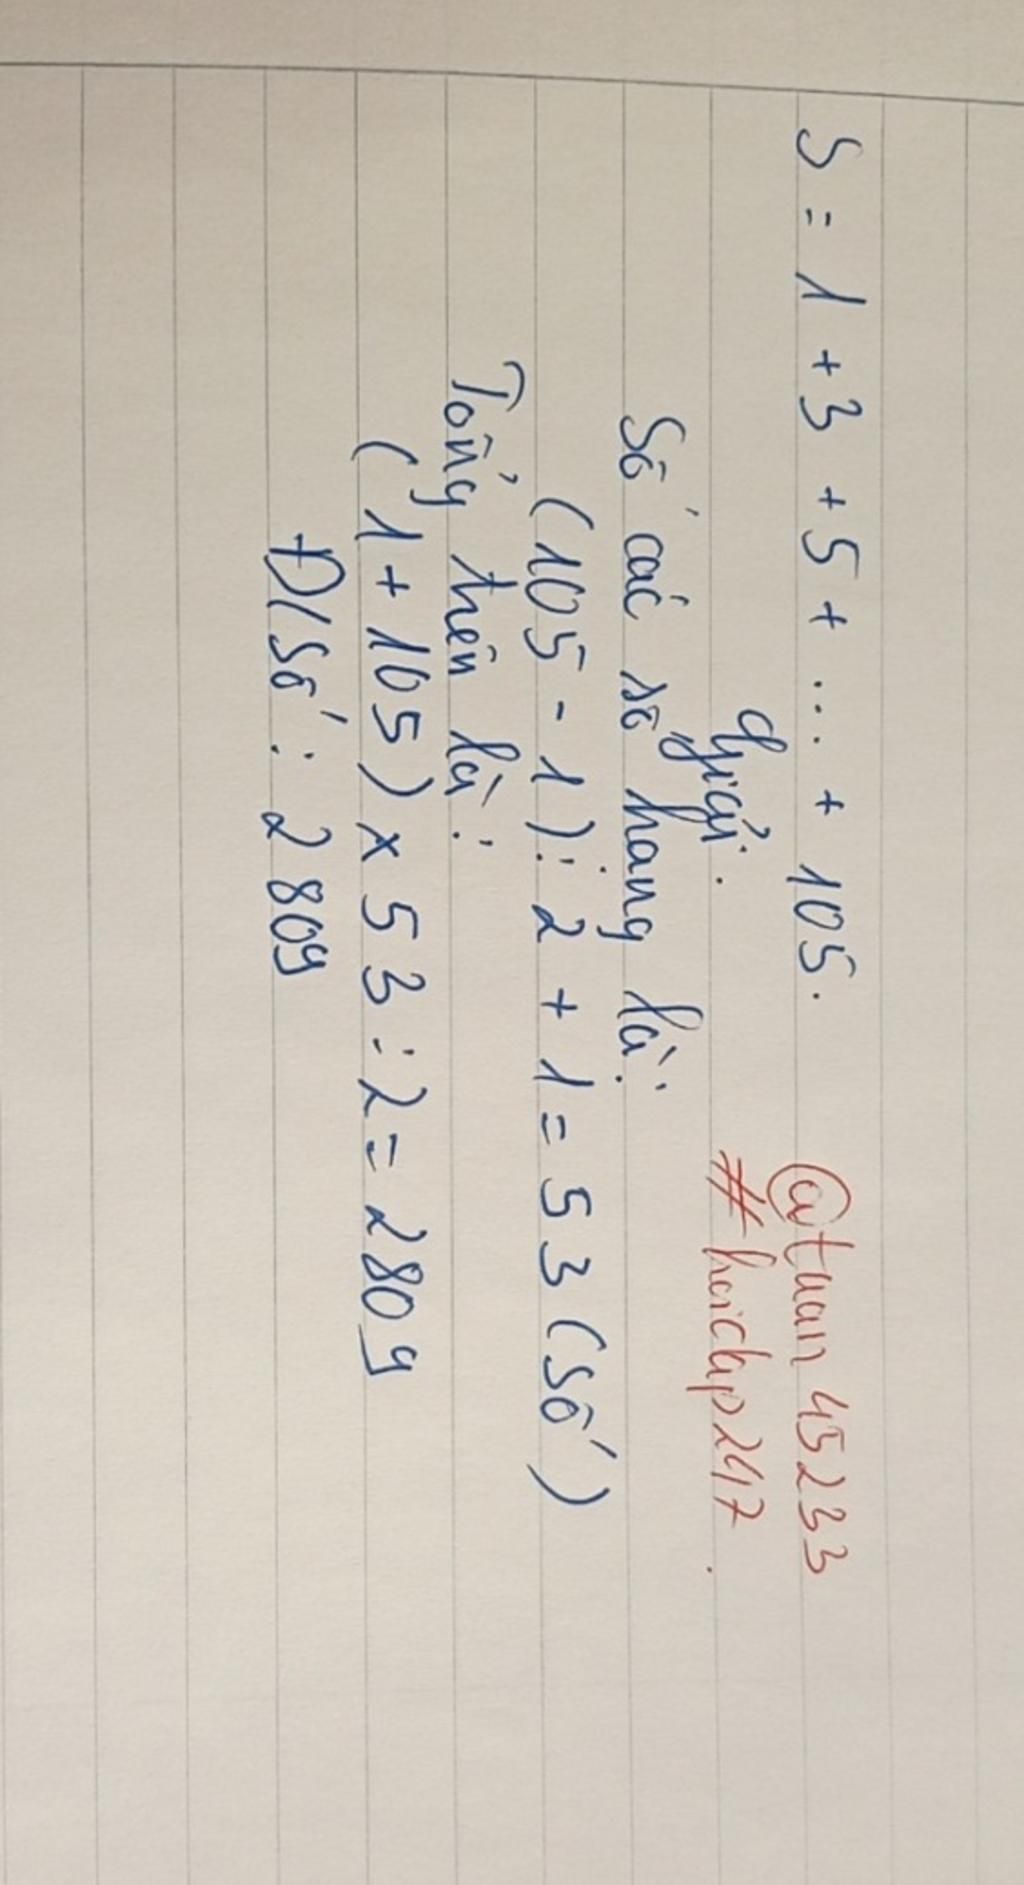 S = 1 + 3 + 5 + ... + 105.
@tuan45233
Giải.
#hoidap247.
Số các số hạng là:
(105 - 1) : 2 + 1 = 53 (số)
Tổng trên là:
(1 + 105) x 53 : 2 = 2809
Đ/Số: 2809